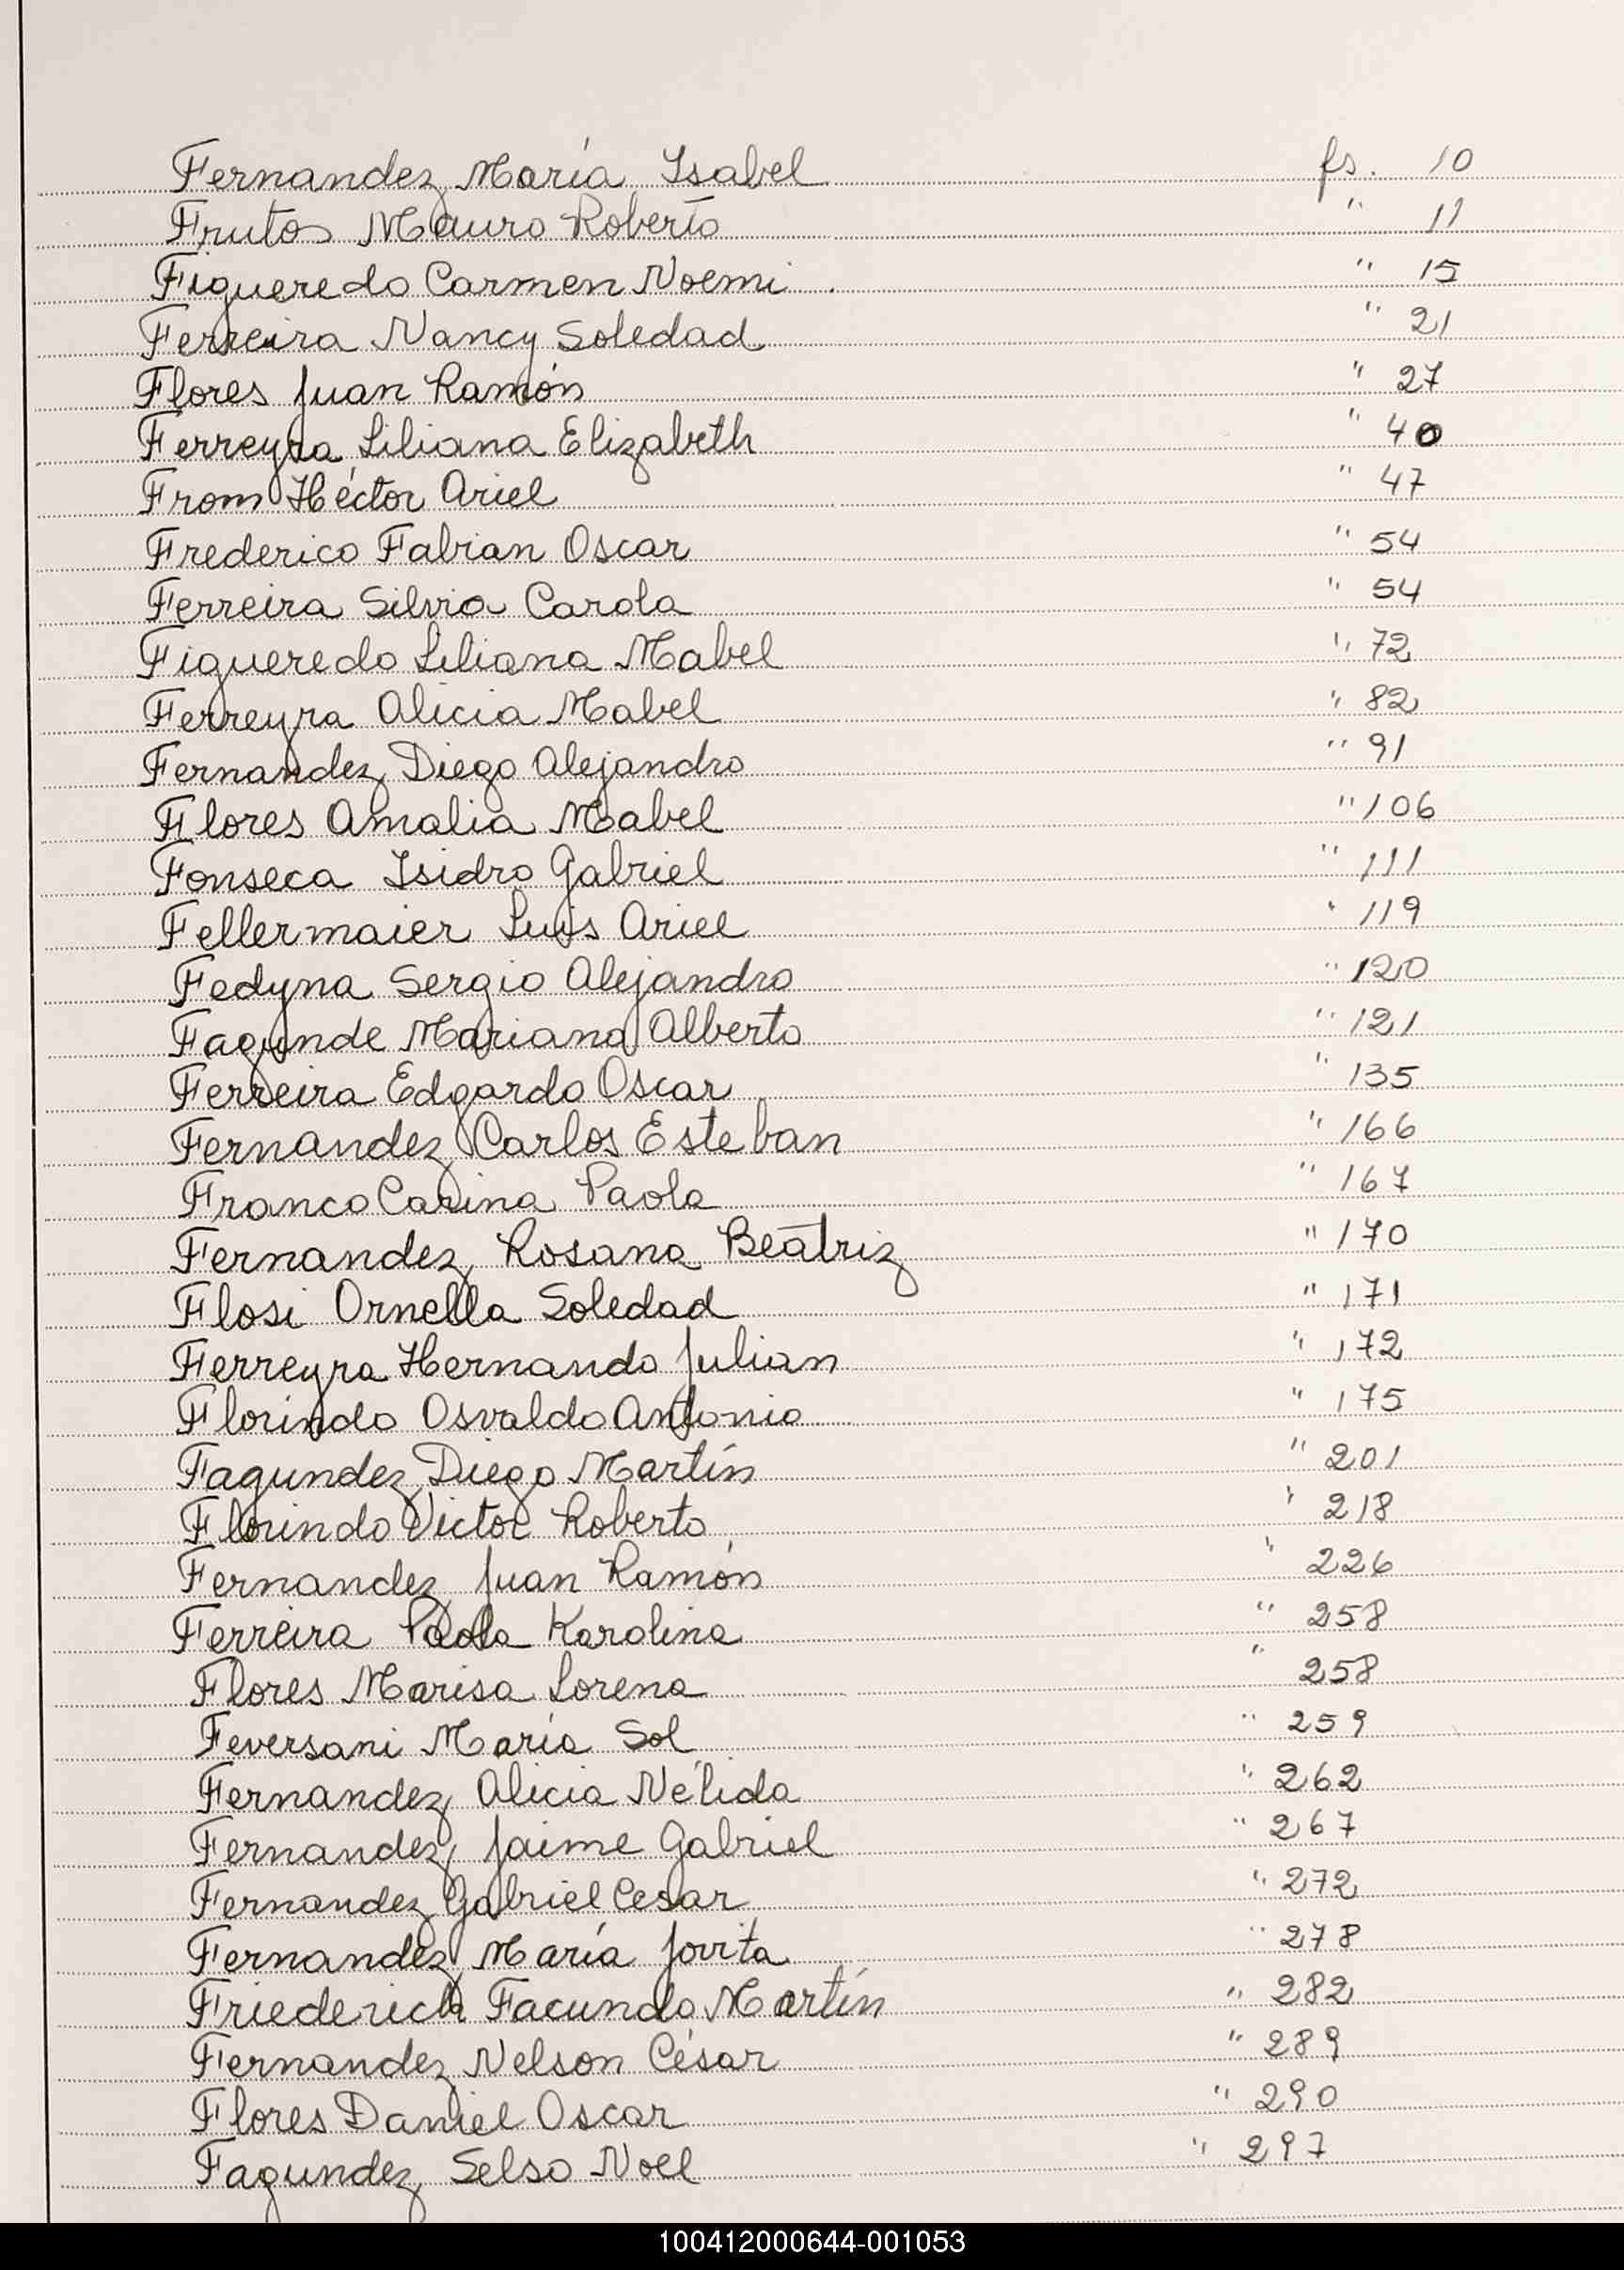 Fernandez María Isabel fs. 10
Frutos Mauro Roberto " 11
Figueredo Carmen Noemi . " 15
Ferreira Nancy Soledad " 21
Flores Juan Ramón " 27
Ferreyra Liliana Elizabeth " 40
From Héctor Ariel " 47
Frederico Fabian Oscar " 54
Ferreira Silvia Carola " 54
Figueredo Liliana Mabel " 72
Ferreyra Alicia Mabel " 82
Fernandez Diego Alejandro " 91
Flores Amalia Mabel " 106
Fonseca Isidro Gabriel " 111
Fellermaier Luis Ariel " 119
Fedyna Sergio Alejandro " 120
Fagunde Mariano Alberto " 121
Ferreira Edgardo Oscar " 135
Fernandez Carlos Esteban " 166
Franco Carina Paola " 167
Fernandez Rosana Beatriz " 170
Flosi Ornella Soledad " 171
Ferreyra Hernando Julian " 172
Florindo Osvaldo Antonio " 175
Fagundez Diego Martín " 201
Florindo Victor Roberto " 218
Fernandez Juan Ramón " 226
Ferreira Paola Karolina " 258
Flores Marisa Lorena " 258
Feversani María Sol " 259
Fernandez Alicia Nélida " 262
Fernandez Jaime Gabriel " 267
Fernandez Gabriel Cesar " 272
Fernandez María Jovita " 278
Friederich Facundo Martín " 282
Fernandez Nelson César " 289
Flores Daniel Oscar " 290
Fagundez Selso Noel " 297
100412000644-001053